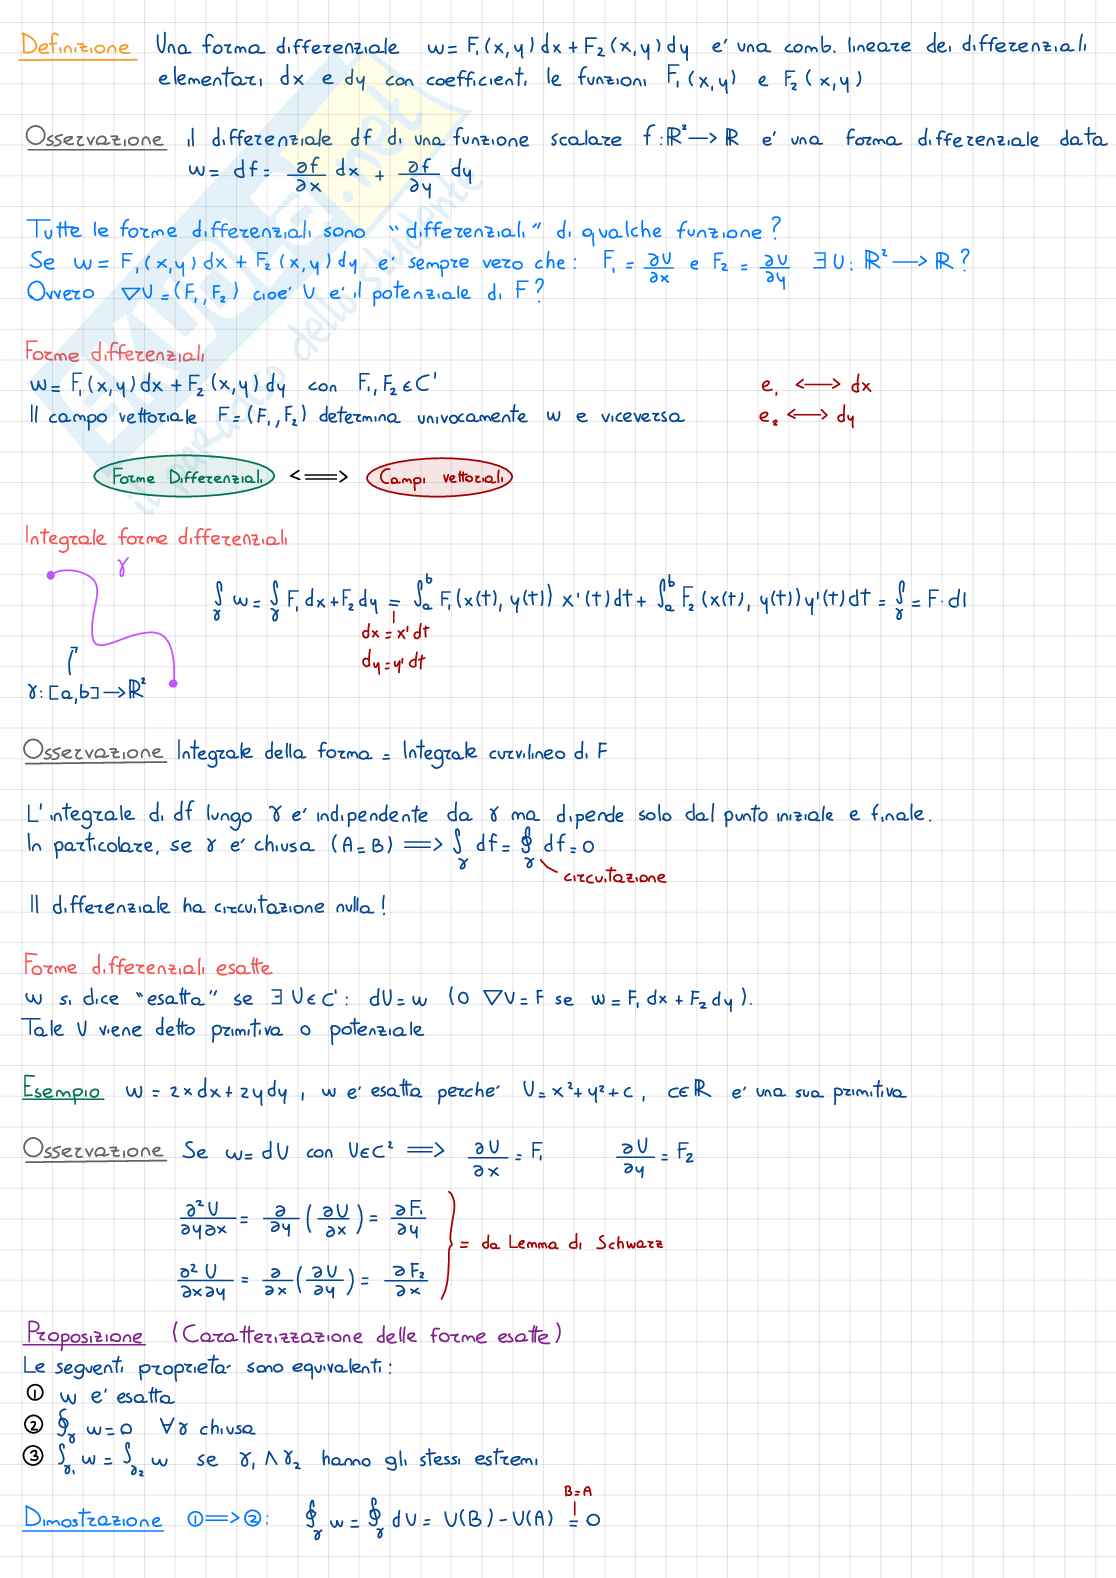 Definizione Una forma differenziale w= F₁(x,y)dx+F₂(x,y)dy e' una comb. lineare dei differenziali
elementari dx e dy con coefficienti le funzioni F₁(x,y) e F₂(x,y)
Osservazione il differenziale df di una funzione scalare f:ℝ²→ℝ e' una forma differenziale data
w= df= ∂f/∂x dx + ∂f/∂y dy
Tutte le forme differenziali sono “differenziali“ di qualche funzione?
Se w= F₁(x,y)dx+F₂(x,y)dy e' sempre vero che: F₁ = ∂U/∂x e F₂ = ∂U/∂y ∃U: ℝ²→ℝ?
Ovvero ∇U=(F₁,F₂) cioe' U e' il potenziale di F?
Forme differenziali
w= F₁(x,y)dx+F₂(x,y)dy con F₁,F₂∈C¹
e₁ <—> dx
Il campo vettoriale F=(F₁,F₂) determina univocamente w e viceversa
e₂ <—> dy
Forme Differenziali <==> Campi vettoriali
Integrale forme differenziali
γ
∫γ w= ∫γ F₁dx+F₂dy = ∫ₐᵇ F₁(x(t), y(t)) x'(t)dt+ ∫ₐᵇ F₂(x(t), y(t))y'(t)dt = ∫γ = F·dl
dx=x'dt
dy=y'dt
γ:[a,b]→ℝ²
Osservazione Integrale della forma = Integrale curvilineo di F
L'integrale di df lungo γ e' indipendente da γ ma dipende solo dal punto iniziale e finale.
In particolare, se γ e' chiusa (A=B) ==> ∫γ df= ∮γ df=0
circuitazione
Il differenziale ha circuitazione nulla!
Forme differenziali esatte
w si dice “esatta” se ∃U∈C¹: dU=w (o ∇U=F se w=F₁dx+F₂dy).
Tale U viene detto primitiva o potenziale
Esempio w = 2xdx+2ydy, w e' esatta perche' U=x²+y²+c, c∈ℝ e' una sua primitiva
Osservazione Se w=dU con U∈C² ==> ∂U/∂x = F₁ ∂U/∂y = F₂
∂²U/∂y∂x = ∂/∂y (∂U/∂x) = ∂F₁/∂y
= da Lemma di Schwarz
∂²U/∂x∂y = ∂/∂x (∂U/∂y) = ∂F₂/∂x
Proposizione (Caratterizzazione delle forme esatte)
Le seguenti proprieta' sono equivalenti:
① w e' esatta
② ∮γ w=0 ∀γ chiusa
③ ∫γ₁ w= ∫γ₂ w se γ₁∧γ₂ hanno gli stessi estremi
B=A
Dimostrazione ①==>②: ∮γ w= ∮γ dU= U(B)-U(A) = 0
SKUOLA.net
il paradiso dello studente